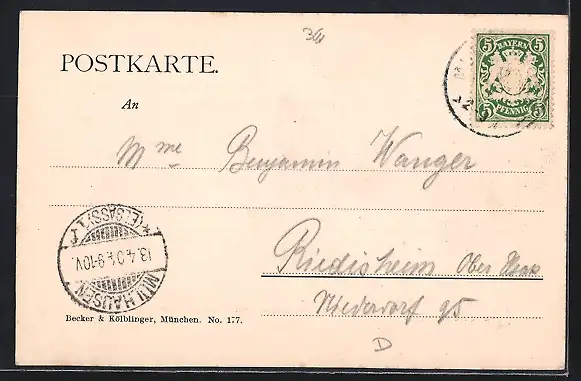 POSTKARTE.
5 BAYERN 5
5 PFENNIG 5
An
Mme Benjamin Wanger
Riedisheim Ober Elsass
Niederdorf 95
MÜLHAUSEN
13.4.04.9-10V
*(ELSASS)1
Becker & Kölblinger, München. No. 177.
D